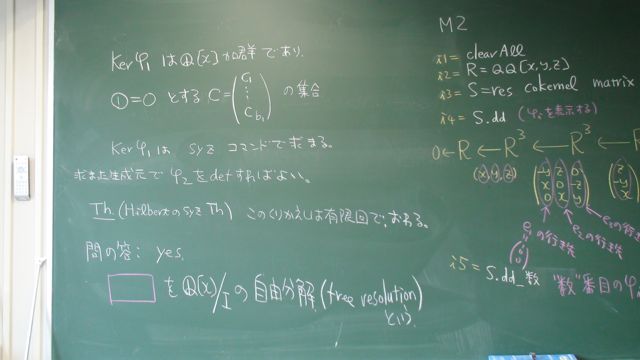 Ker φ₁ は Q[x] 加群であり、
①=0 とする C=(C₁ ⋮ C_b₁) の集合
Ker φ₁ は syz コマンドで求まる。
求めた生成元で φ₂ を def すればよい。
Th (Hilbert の Syz Th) このくりかえしは有限回で、おわる。
問の答: yes.
を Q[x]/I の自由分解 (free resolution)
という.
M2
i1 = clearAll
i2 = R = QQ[x,y,z]
i3 = S=res cokernel matrix
i4 = S.dd (φᵢを表示する)
0←R ← R³ ← R³ ← R
(x, y, z) (-y z 0 x 0 -z 0 x y) (z -y x)
e₁の行き先 e₂の行き先 e₃の行き先
i5 = S.dd_数 "数"番目のφ